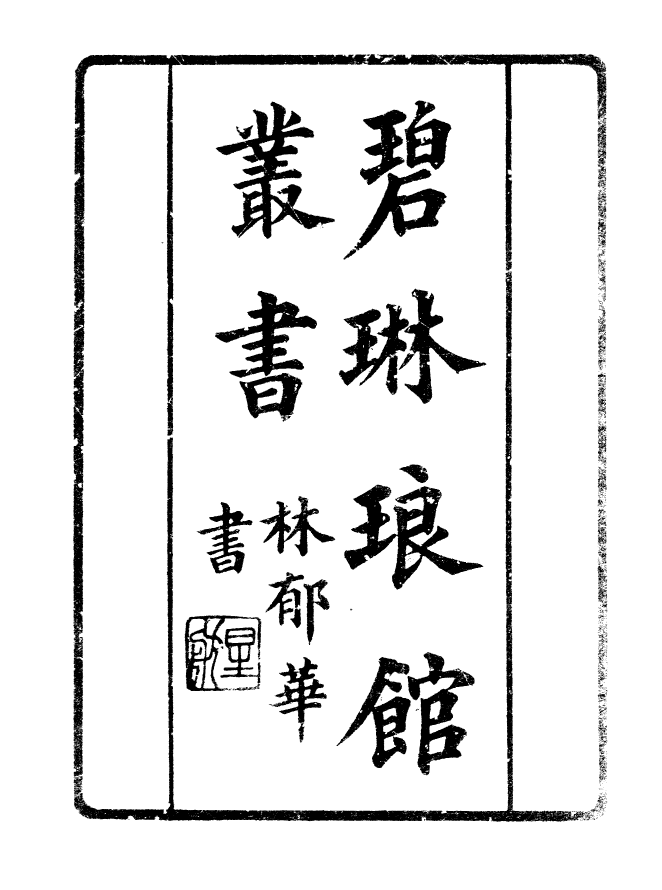 碧琳琅館
叢書
林郁華
書